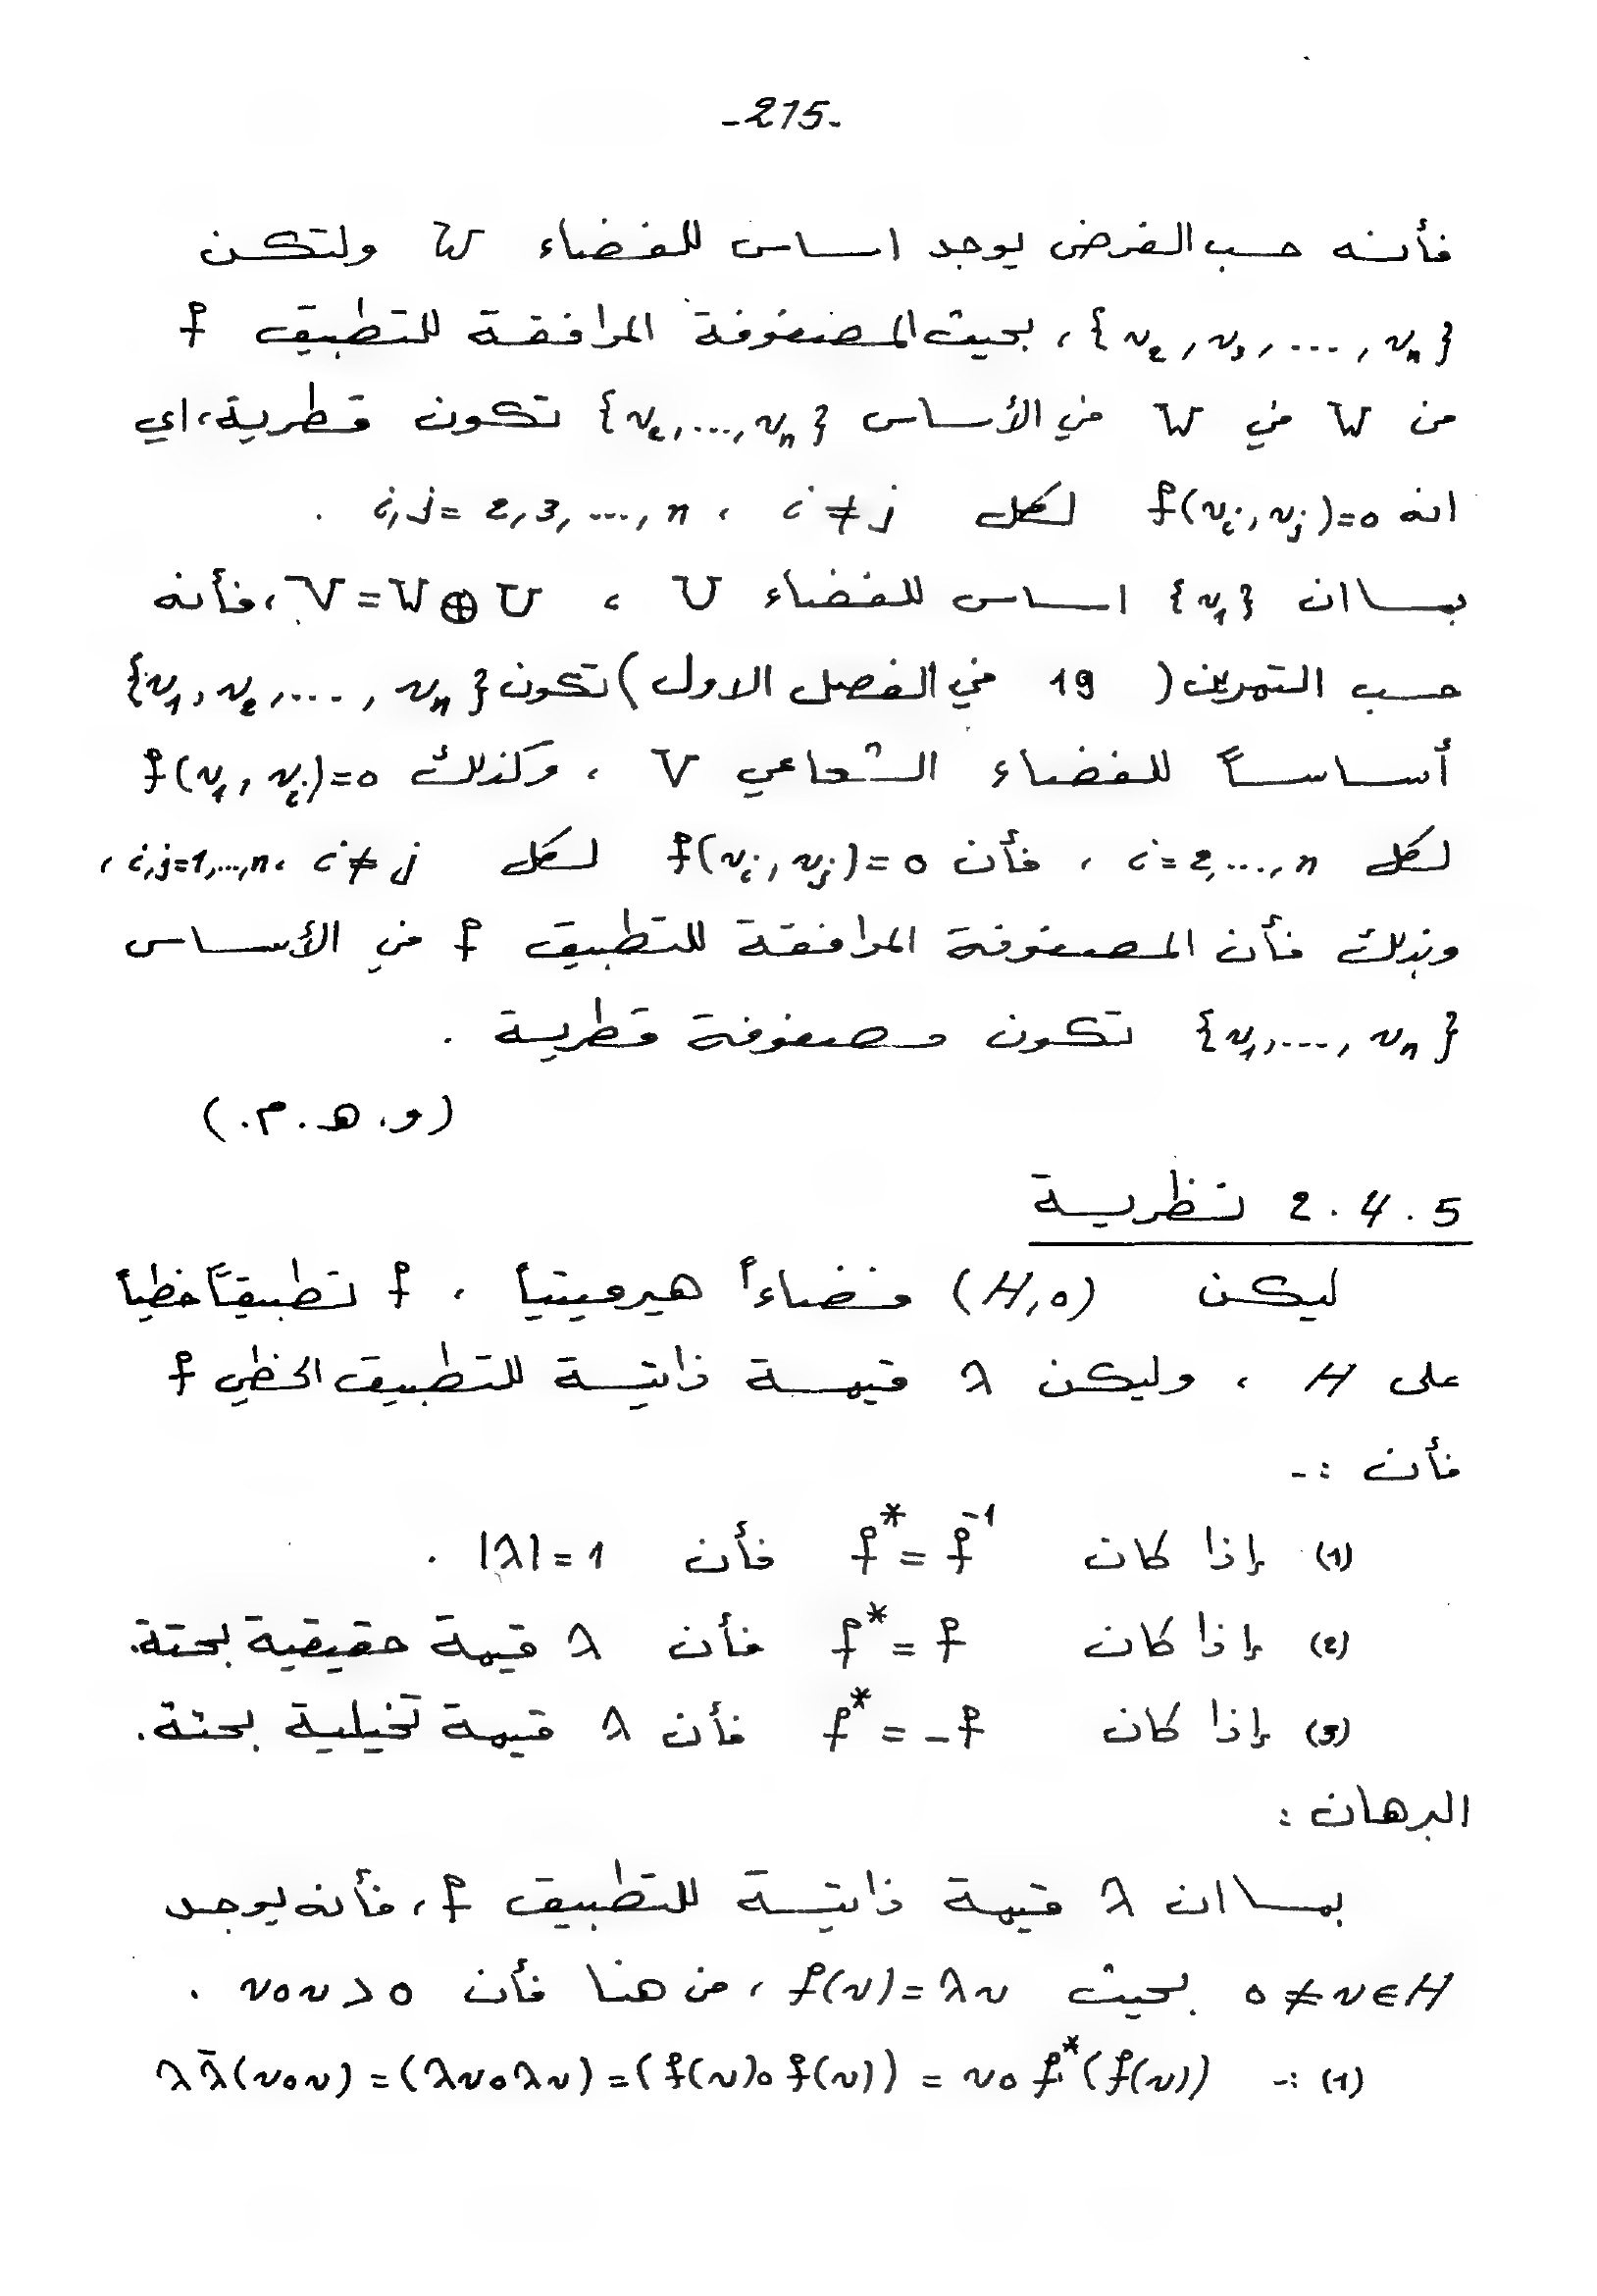 -215-
فأنه حسب الفرض يوجد اساس للفضاء W ولتكن
{v₂, v₃, ..., vₙ} ، بحيث المصفوفة المرافقة للتطبيق f
من W في W في الأساس {v₂, ..., vₙ} تكون قطرية، اي
انه f(vᵢ, vⱼ)=0 لكل i≠j ، i,j=2,3,...,n .
بما ان {v₁} اساس للفضاء U ، V=W⊕U ، فأنه
حسب التمرين ( 19 في الفصل الاول) تكون {v₁, v₂, ..., vₙ}
أساساً للفضاء الشعاعي V ، وكذلك f(v₁, vᵢ)=0
لكل i=2,...,n ، فأن f(vᵢ, vⱼ)=0 لكل i≠j ، i,j=1,...,n ،
وبذلك فأن المصفوفة المرافقة للتطبيق f في الأساس
{v₁, ..., vₙ} تكون مصفوفة قطرية .
(و. هـ. م.)
2.4.5 نظرية
ليكن (H,o) فضاءاً هيرميتياً ، f تطبيقاً خطياً
على H ، وليكن λ قيمة ذاتية للتطبيق الخطي f
فأن :-
(1) إذا كان f*=f⁻¹ فأن |λ|=1 .
(2) إذا كان f*=f فأن λ قيمة حقيقية بحتة.
(3) إذا كان f*=-f فأن λ قيمة تخيلية بحتة.
البرهان :
بما ان λ قيمة ذاتية للتطبيق f ، فأنه يوجد
0≠v∈H بحيث f(v)=λv ، من هنا فأن vov>0 .
(1) :- λλ̄(vov)=(λvoλv)=(f(v)of(v))=vof*(f(v))